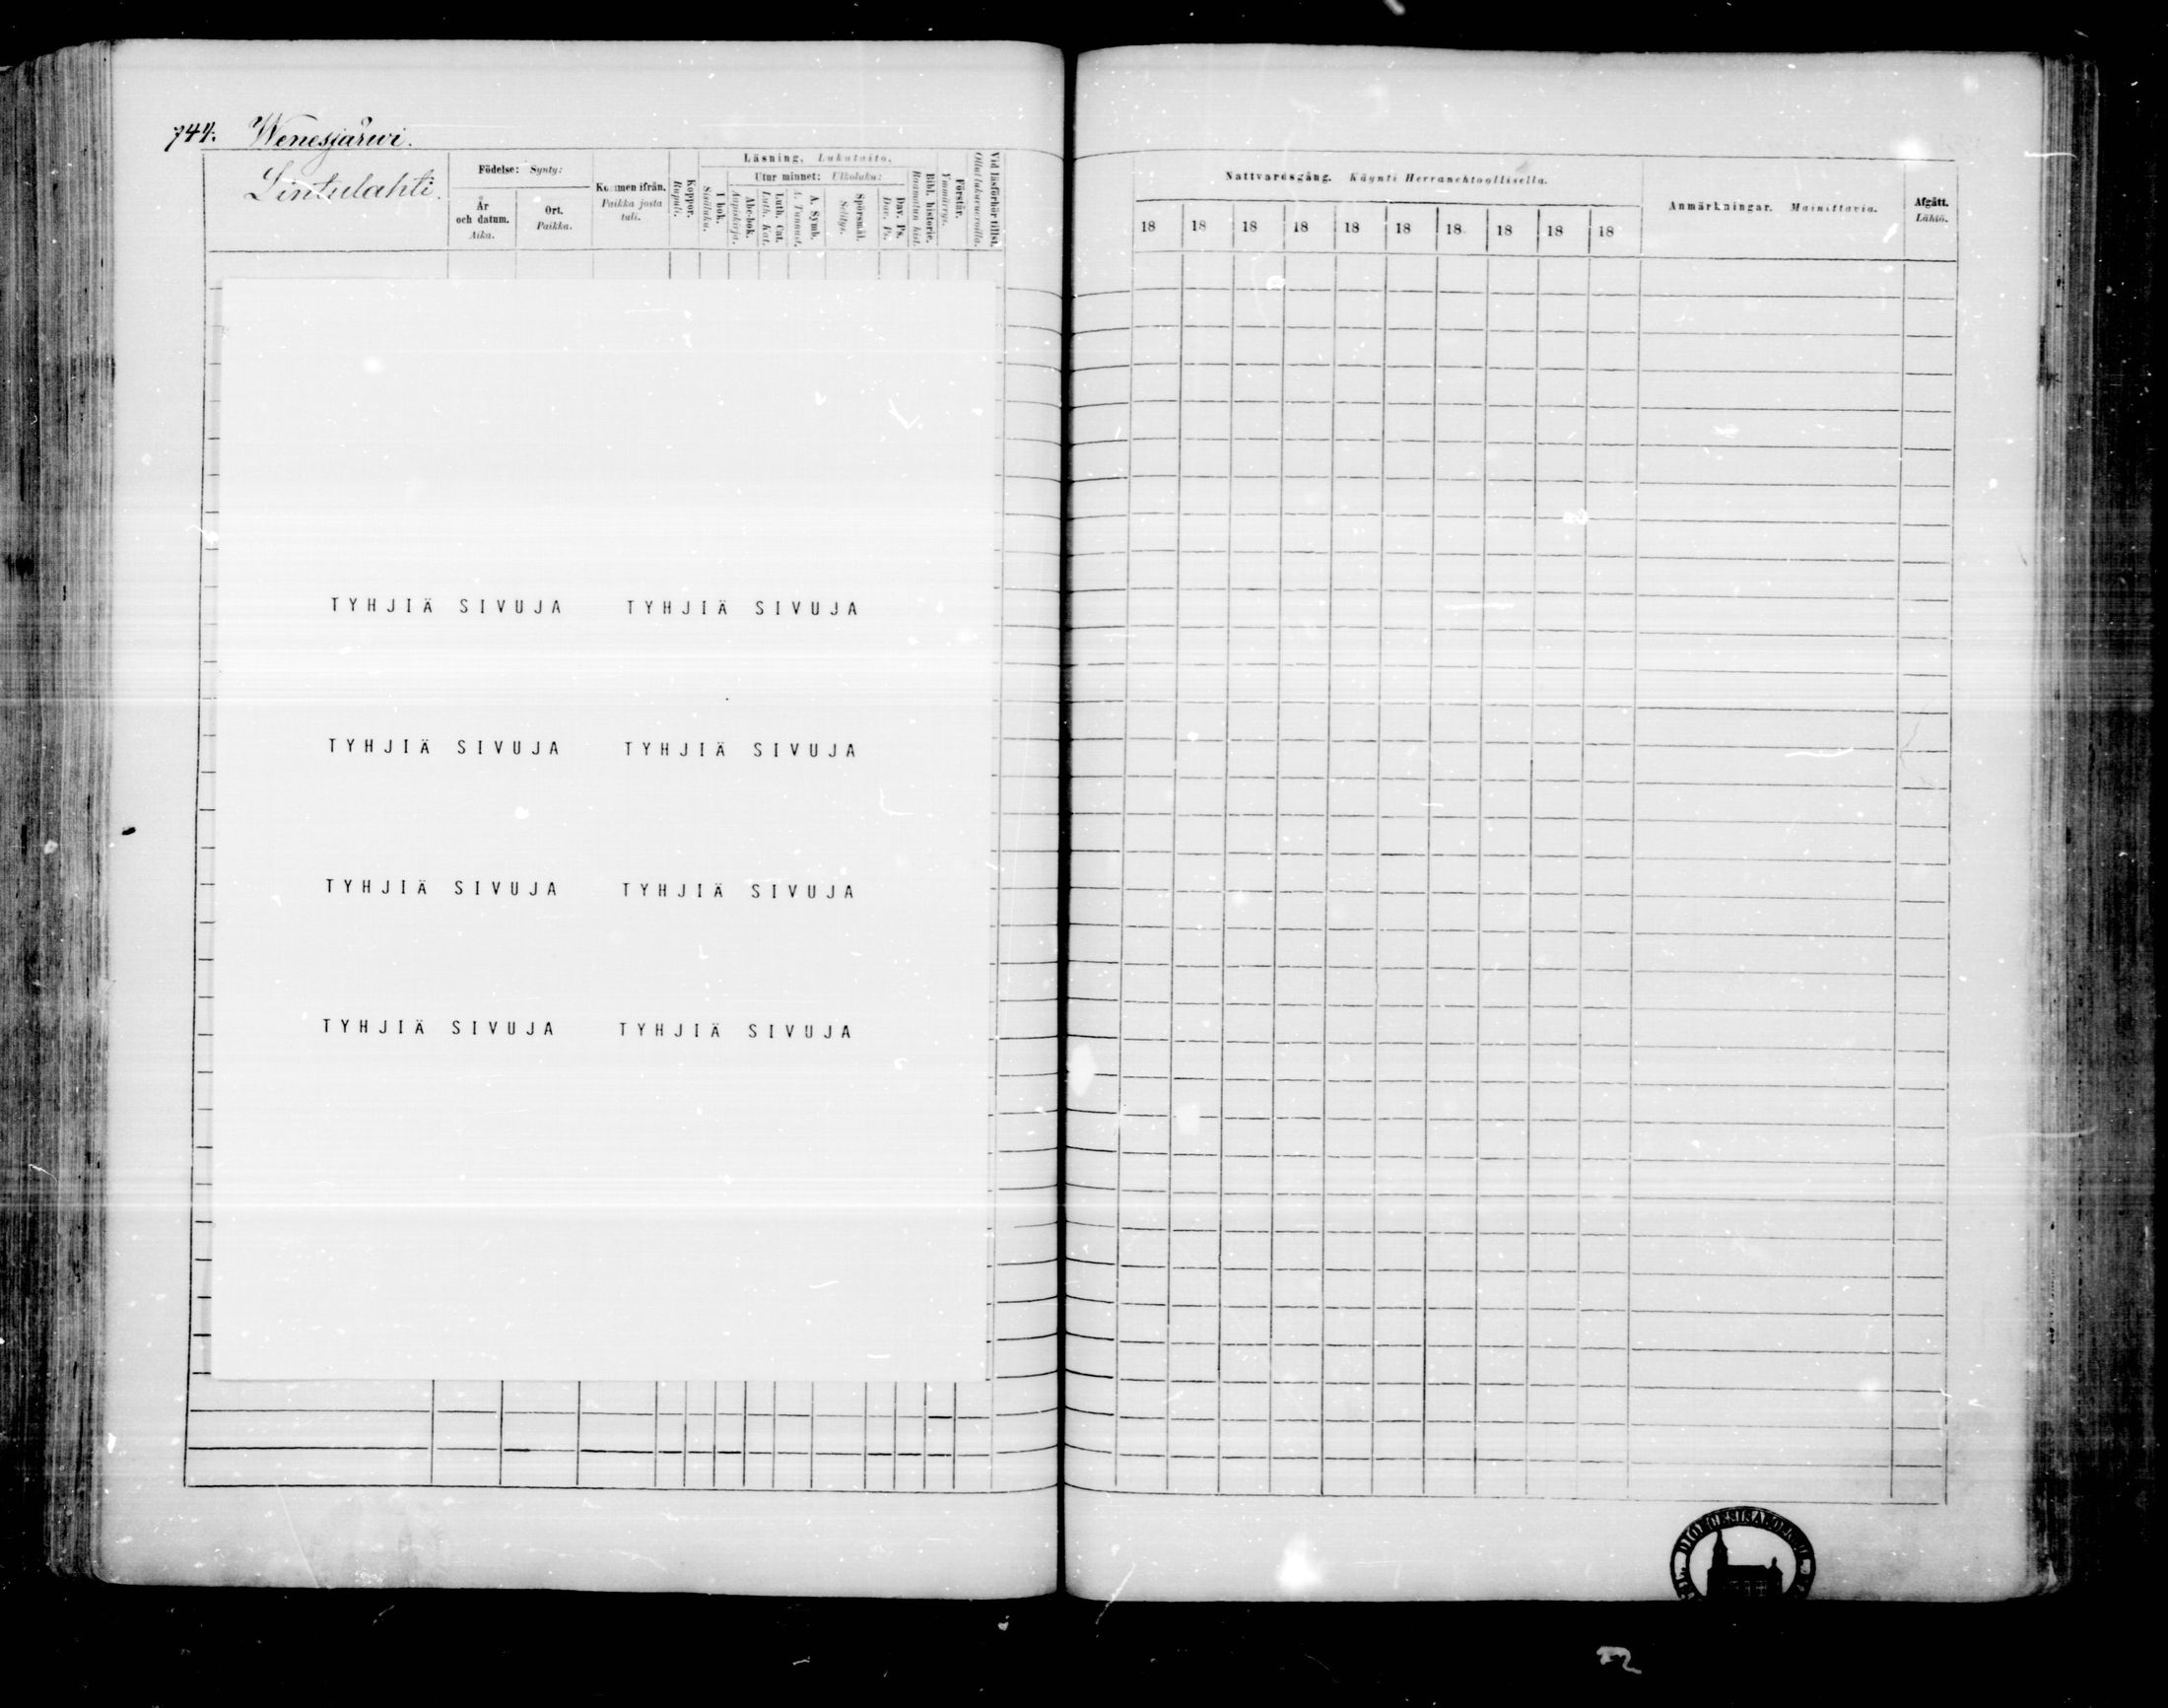 744. Wenesjärwi.
Lintulahti.
Födelse: Synty:
År och datum. Aika.
Ort. Paikka.
Kommen ifrån. Paikka josta tuli.
Koppor. Rupuli.
Läsning, Lukutaito,
I bok. Sisäluku.
Utur minnet: Ulkoluku:
Abc-bok. Aapiskirja.
Luth. Cat. Luth. Kat.
A. Symb. A. Tunnust.
Spörsmål. Selitys.
Dav. Ps. Dav. Ps.
Bibl. historie. Raamatun hist.
Förstår. Ymmärrys.
Vid läsförhör tillst. Ollut lukukuulusteluilla.
Nattvardsgång. Käynti Herranehtoollisella.
18 18 18 18 18 18 18 18 18 18
Anmärkningar. Mainittavia.
Afgått. Lähtö.
TYHJIÄ SIVUJA TYHJIÄ SIVUJA
TYHJIÄ SIVUJA TYHJIÄ SIVUJA
TYHJIÄ SIVUJA TYHJIÄ SIVUJA
TYHJIÄ SIVUJA TYHJIÄ SIVUJA